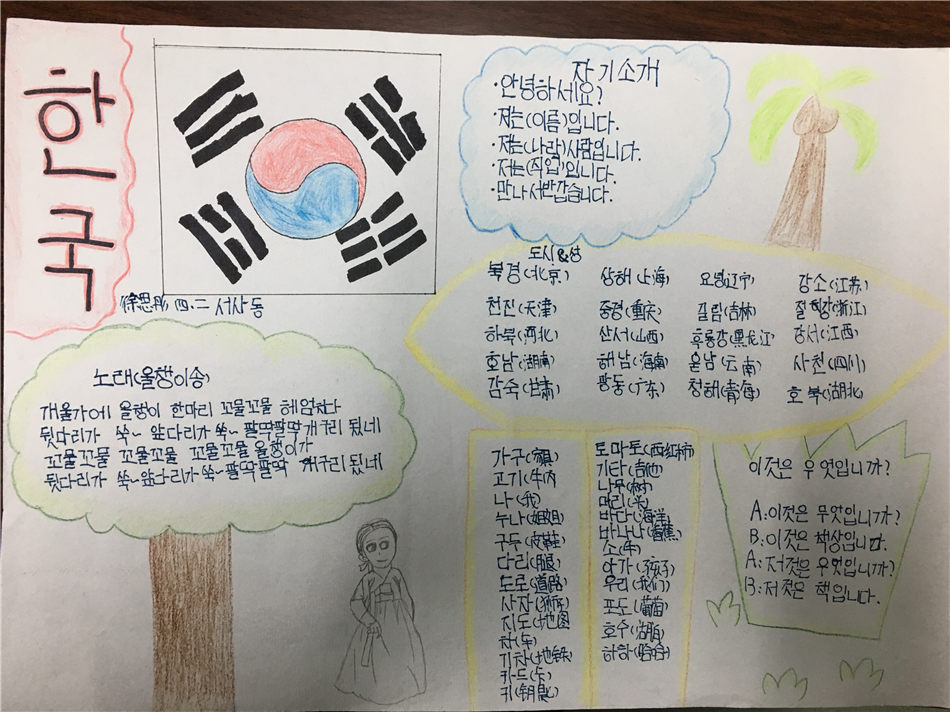 한국
자기소개
·안녕하세요?
·저는(이름)입니다.
·저는(나라)사람입니다.
·저는(직업)입니다.
·만나서반갑습니다.
徐思彤 四.二 서사동
도시&성
북경(北京) 상해(上海) 요녕(辽宁) 강소(江苏)
천진(天津) 중경(重庆) 길림(吉林) 절강(浙江)
하북(河北) 산서(山西) 흑룡강(黑龙江) 강서(江西)
호남(湖南) 해남(海南) 운남(云南) 사천(四川)
감숙(甘肃) 광동(广东) 청해(青海) 호북(湖北)
노래(올챙이송)
개울가에 올챙이 한마리 꼬물꼬물 헤엄치다
뒷다리가 쑥~ 앞다리가 쑥~ 팔딱팔딱개구리 됬네
꼬물꼬물 꼬물꼬물 꼬물꼬물올챙이가
뒷다리가 쑥~앞다리가쑥~팔딱팔딱 개구리 됬네
가구(家具)
고기(牛肉)
나(我)
누나(姐姐)
구두(皮鞋)
다리(腿)
도로(道路)
사자(狮子)
지도(地图)
차(车)
기차(地铁)
카드(卡)
키(钥匙)
토마토(西红柿)
기타(吉他)
나무(树)
머리(头)
바다(海洋)
바나나(香蕉)
소(牛)
아가(孩子)
우리(我们)
포도(葡萄)
호수(湖)
하하(哈哈)
이것은 무엇입니까?
A:이것은 무엇입니까?
B:이것은 책상입니다.
A:저것은 무엇입니까?
B:저것은 책입니다.